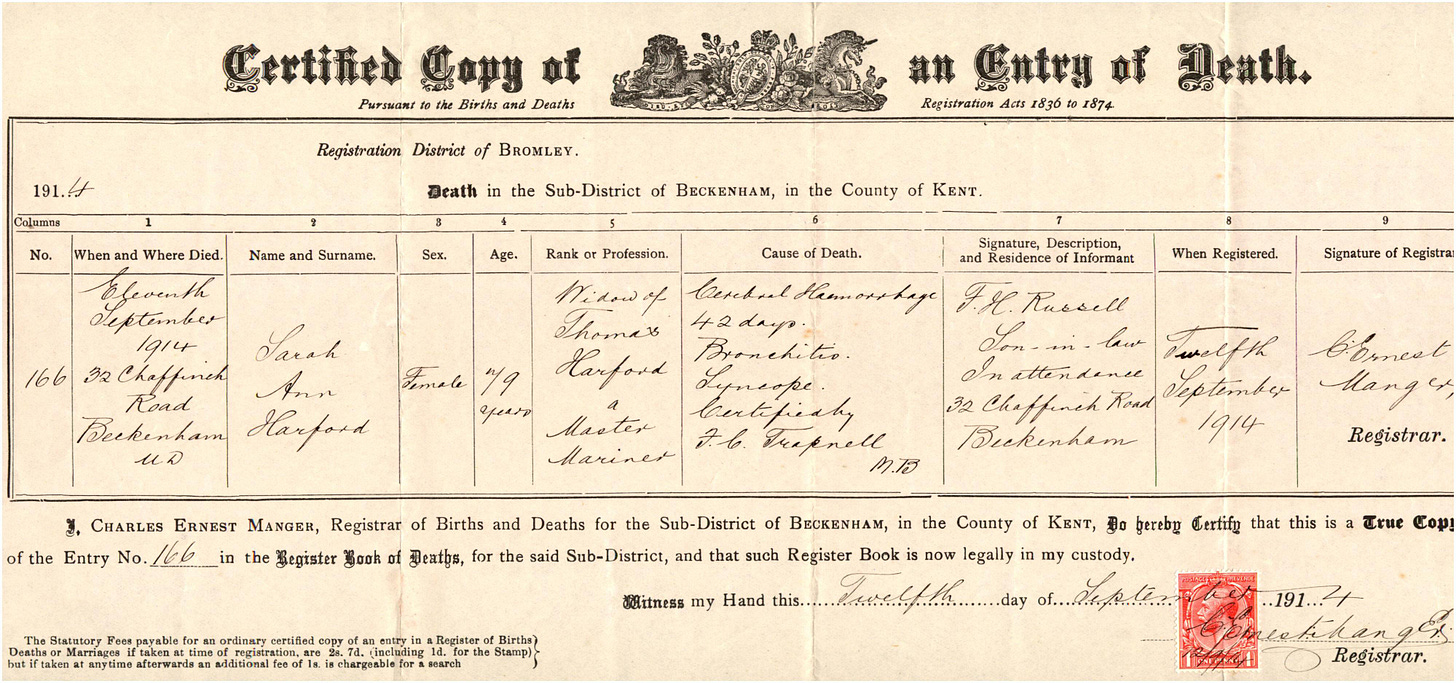 Certified Copy of an Entry of Death.
Pursuant to the Births and Deaths Registration Acts 1836 to 1874.
Registration District of BROMLEY.
1914 Death in the Sub-District of BECKENHAM, in the County of KENT.
Columns 1 2 3 4 5 6 7 8 9
No. When and Where Died. Name and Surname. Sex. Age. Rank or Profession. Cause of Death. Signature, Description, and Residence of Informant When Registered. Signature of Registrar
166
Eleventh
September
1914
32 Chaffinch
Road
Beckenham
U D
Sarah
Ann
Harford
Female
79
years
Widow of
Thomas
Harford
a
Master
Mariner
Cerebral Haemorrhage
42 days.
Bronchitis.
Syncope.
Certified by
F. C. Trapnell
M.B
F. H. Russell
Son-in-law
In attendance
32 Chaffinch Road
Beckenham
Twelfth
September
1914
C. Ernest
Manger,
Registrar.
I, CHARLES ERNEST MANGER, Registrar of Births and Deaths for the Sub-District of BECKENHAM, in the County of KENT, Do hereby Certify that this is a True Copy
of the Entry No. 166 in the Register Book of Deaths, for the said Sub-District, and that such Register Book is now legally in my custody.
Witness my Hand this Twelfth day of September 1914
C. Ernest Manger
Registrar.
The Statutory Fees payable for an ordinary certified copy of an entry in a Register of Births
Deaths or Marriages if taken at time of registration, are 2s. 7d. (including 1d. for the Stamp)
but if taken at anytime afterwards an additional fee of 1s. is chargeable for a search